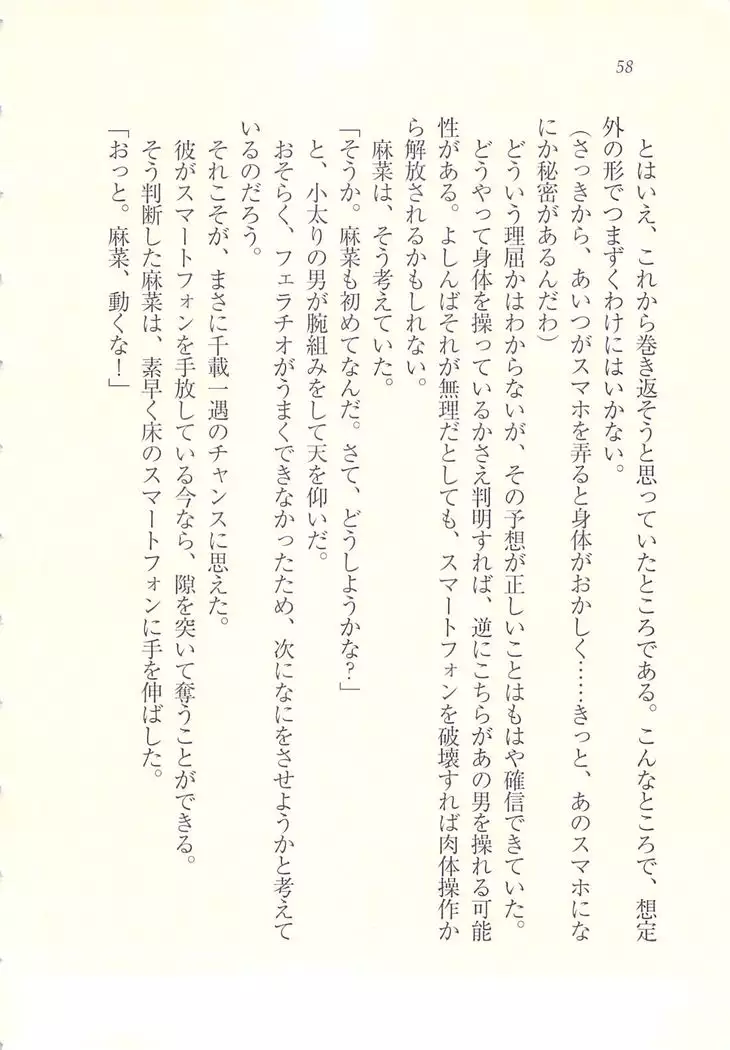 58
とはいえ、これから巻き返そうと思っていたところである。こんなところで、想定
外の形でつまずくわけにはいかない。
(さっきから、あいつがスマホを弄ると身体がおかしく……きっと、あのスマホにな
にか秘密があるんだわ)
どういう理屈かはわからないが、その予想が正しいことはもはや確信できていた。
どうやって身体を操っているかさえ判明すれば、逆にこちらがあの男を操れる可能
性がある。よしんばそれが無理だとしても、スマートフォンを破壊すれば肉体操作か
ら解放されるかもしれない。
麻菜は、そう考えていた。
「そうか。麻菜も初めてなんだ。さて、どうしようかな?」
と、小太りの男が腕組みをして天を仰いだ。
おそらく、フェラチオがうまくできなかったため、次になにをさせようかと考えて
いるのだろう。
それこそが、まさに千載一遇のチャンスに思えた。
彼がスマートフォンを手放している今なら、隙を突いて奪うことができる。
そう判断した麻菜は、素早く床のスマートフォンに手を伸ばした。
「おっと。麻菜、動くな!」